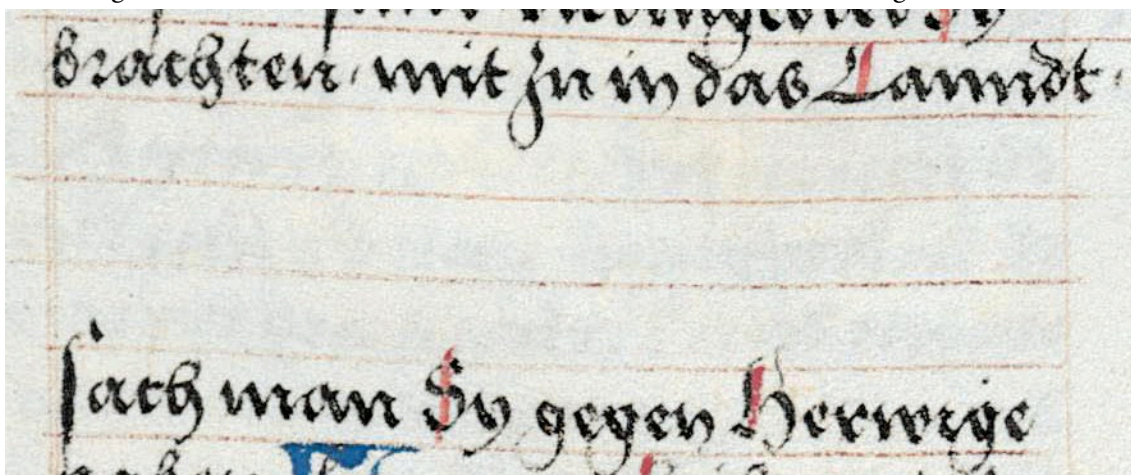 Sy
brachten · mit jn in das Lanndt ·
sach man Sy gegen Herwige